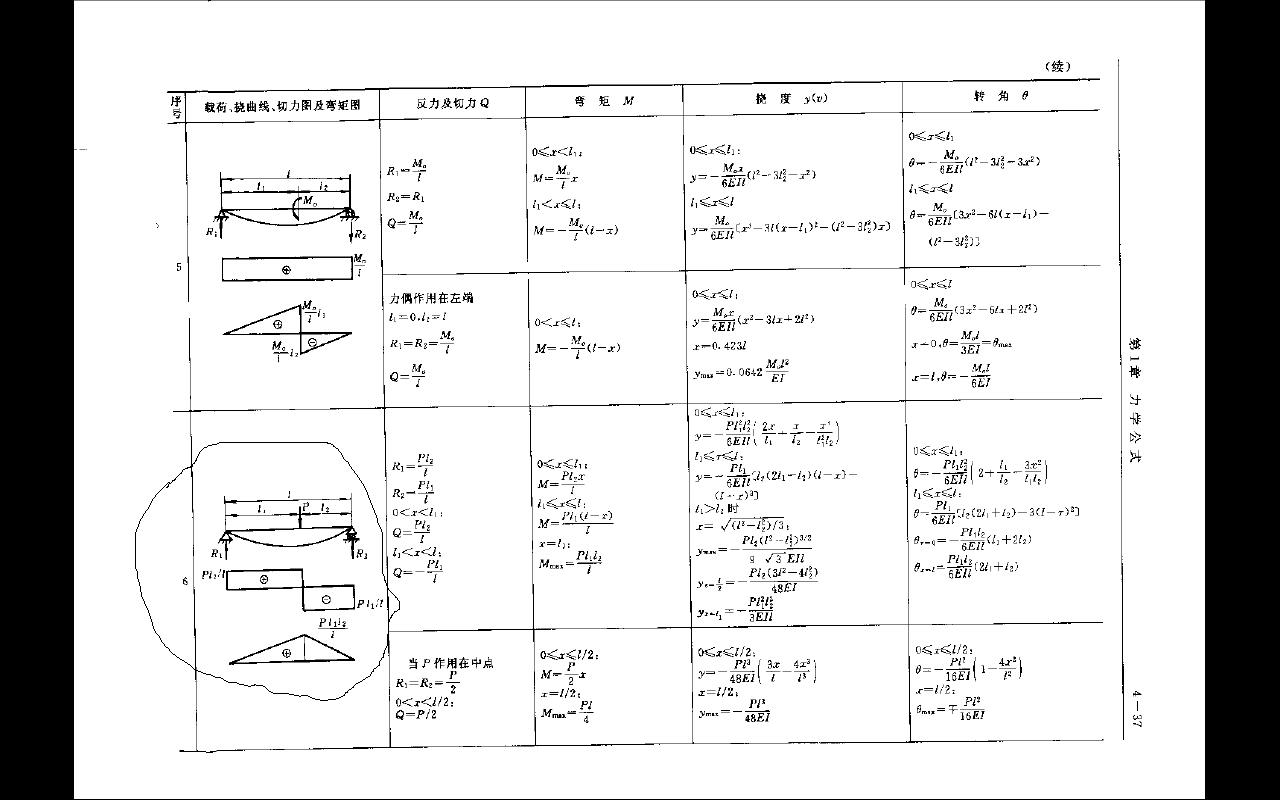 (续)
序号 载荷、挠曲线、切力图及弯矩图 反力及切力 Q 弯 矩 M 挠 度 y(v) 转 角 θ
5
l
l₁ l₂
Mₒ
R₁ R₂
⊕ Mₒ/l
⊕ Mₒ/l l₁
Mₒ/l l₂ ⊖
R₁=Mₒ/l
R₂=R₁
Q=Mₒ/l
0≤x<l₁:
M=Mₒ/l x
l₁<x≤l:
M=-Mₒ/l(l-x)
0≤x≤l₁:
y=-Mₒx/6EIl(l²-3l₂²-x²)
l₁≤x≤l
y=Mₒ/6EIl[x³-3l(x-l₁)²-(l²-3l₂²)x]
0≤x≤l₁
θ=-Mₒ/6EIl(l²-3l₂²-3x²)
l₁≤x≤l
θ=Mₒ/6EIl[3x²-6l(x-l₁)-
(l²-3l₂²)]
力偶作用在左端
l₁=0,l₂=l
R₁=R₂=Mₒ/l
Q=Mₒ/l
0<x≤l:
M=-Mₒ/l(l-x)
0≤x≤l:
y=Mₒx/6EIl(x²-3lx+2l²)
x=0.423l
yₘₐₓ=0.0642 Mₒl²/EI
0≤x≤l
θ=Mₒ/6EIl(3x²-6lx+2l²)
x=0,θ=Mₒl/3EI=θₘₐₓ
x=l,θ=-Mₒl/6EI
6
l
l₁ P l₂
R₁ R₂
Pl₂/l ⊕
⊖ Pl₁/l
Pl₁l₂/l
⊕
R₁=Pl₂/l
R₂=Pl₁/l
0<x<l₁:
Q=Pl₂/l
l₁<x<l:
Q=-Pl₁/l
0≤x≤l₁:
M=Pl₂x/l
l₁≤x≤l:
M=Pl₁(l-x)/l
x=l₁:
Mₘₐₓ=Pl₁l₂/l
0≤x≤l₁:
y=-Pl₁²l₂²/6EIl(2x/l₁+x/l₂-x³/l₁²l₂)
l₁≤x≤l:
y=-Pl₁/6EIl[l₂(2l₁+l₂)(l-x)-
(l-x)³]
l₁>l₂ 时
x=√(l²-l₂²)/3:
yₘₐₓ=-Pl₂(l²-l₂²)^3/2/9√3EIl
y x=l/2=-Pl₂(3l²-4l₂²)/48EI
y x=l₁=-Pl₁²l₂²/3EIl
0≤x≤l₁:
θ=-Pl₁l₂²/6EIl(2+l₁/l₂-3x²/l₁l₂)
l₁≤x≤l:
θ=Pl₁/6EIl[l₂(2l₁+l₂)-3(l-x)²]
θ x=0=-Pl₁l₂/6EIl(l₁+2l₂)
θ x=l=Pl₁l₂/6EIl(2l₁+l₂)
当 P 作用在中点
R₁=R₂=P/2
0<x<l/2:
Q=P/2
0≤x≤l/2:
M=P/2 x
x=l/2:
Mₘₐₓ=Pl/4
0≤x≤l/2:
y=-Pl³/48EI(3x/l-4x³/l³)
x=l/2:
yₘₐₓ=-Pl³/48EI
0≤x≤l/2:
θ=-Pl²/16EI(1-4x²/l²)
x=l/2:
θₘₐₓ=∓Pl²/16EI
第1章 力学公式
4-37